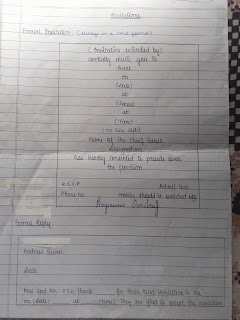 Invitations
Formal Invitation : (always in a word format)
(Invitation extended by)
cordially invite you to
Event
on
(date)
at
(Venue)
at
(Time)
Name of the Chief Guest
designation
has kindly consented to preside over
the function
R.S.V.P
Phone no.
Programme Overleaf
Formal Reply :
Address Given
date
Mrs and Mr. XYZ thank for their kind invitation to the
on (date) at (time) They are glad to accept the invitation